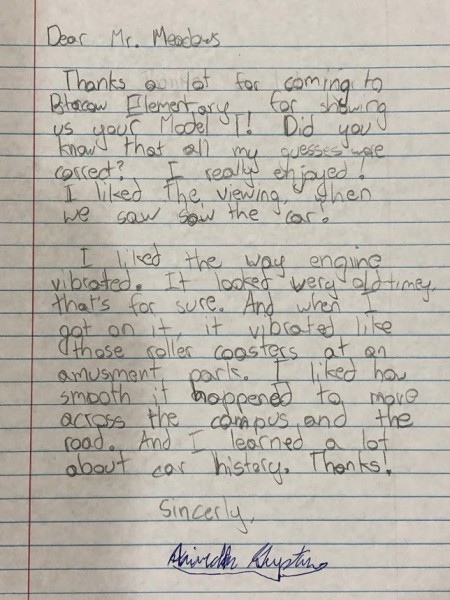 Dear Mr. Meadows
Thanks a lot for coming to
Elementary for showing
us your Model T! Did you
know that all my guesses were
correct? I really enjoyed!
I liked the viewing, when
we saw saw the car!
I liked the way engine
vibrated. It looked very old timey,
that's for sure. And when I
got on it, it vibrated like
those roller coasters at an
amusment park. I liked how
smooth it happened to move
across the campus and the
road. And I learned a lot
about car history. Thanks!
Sincerly,